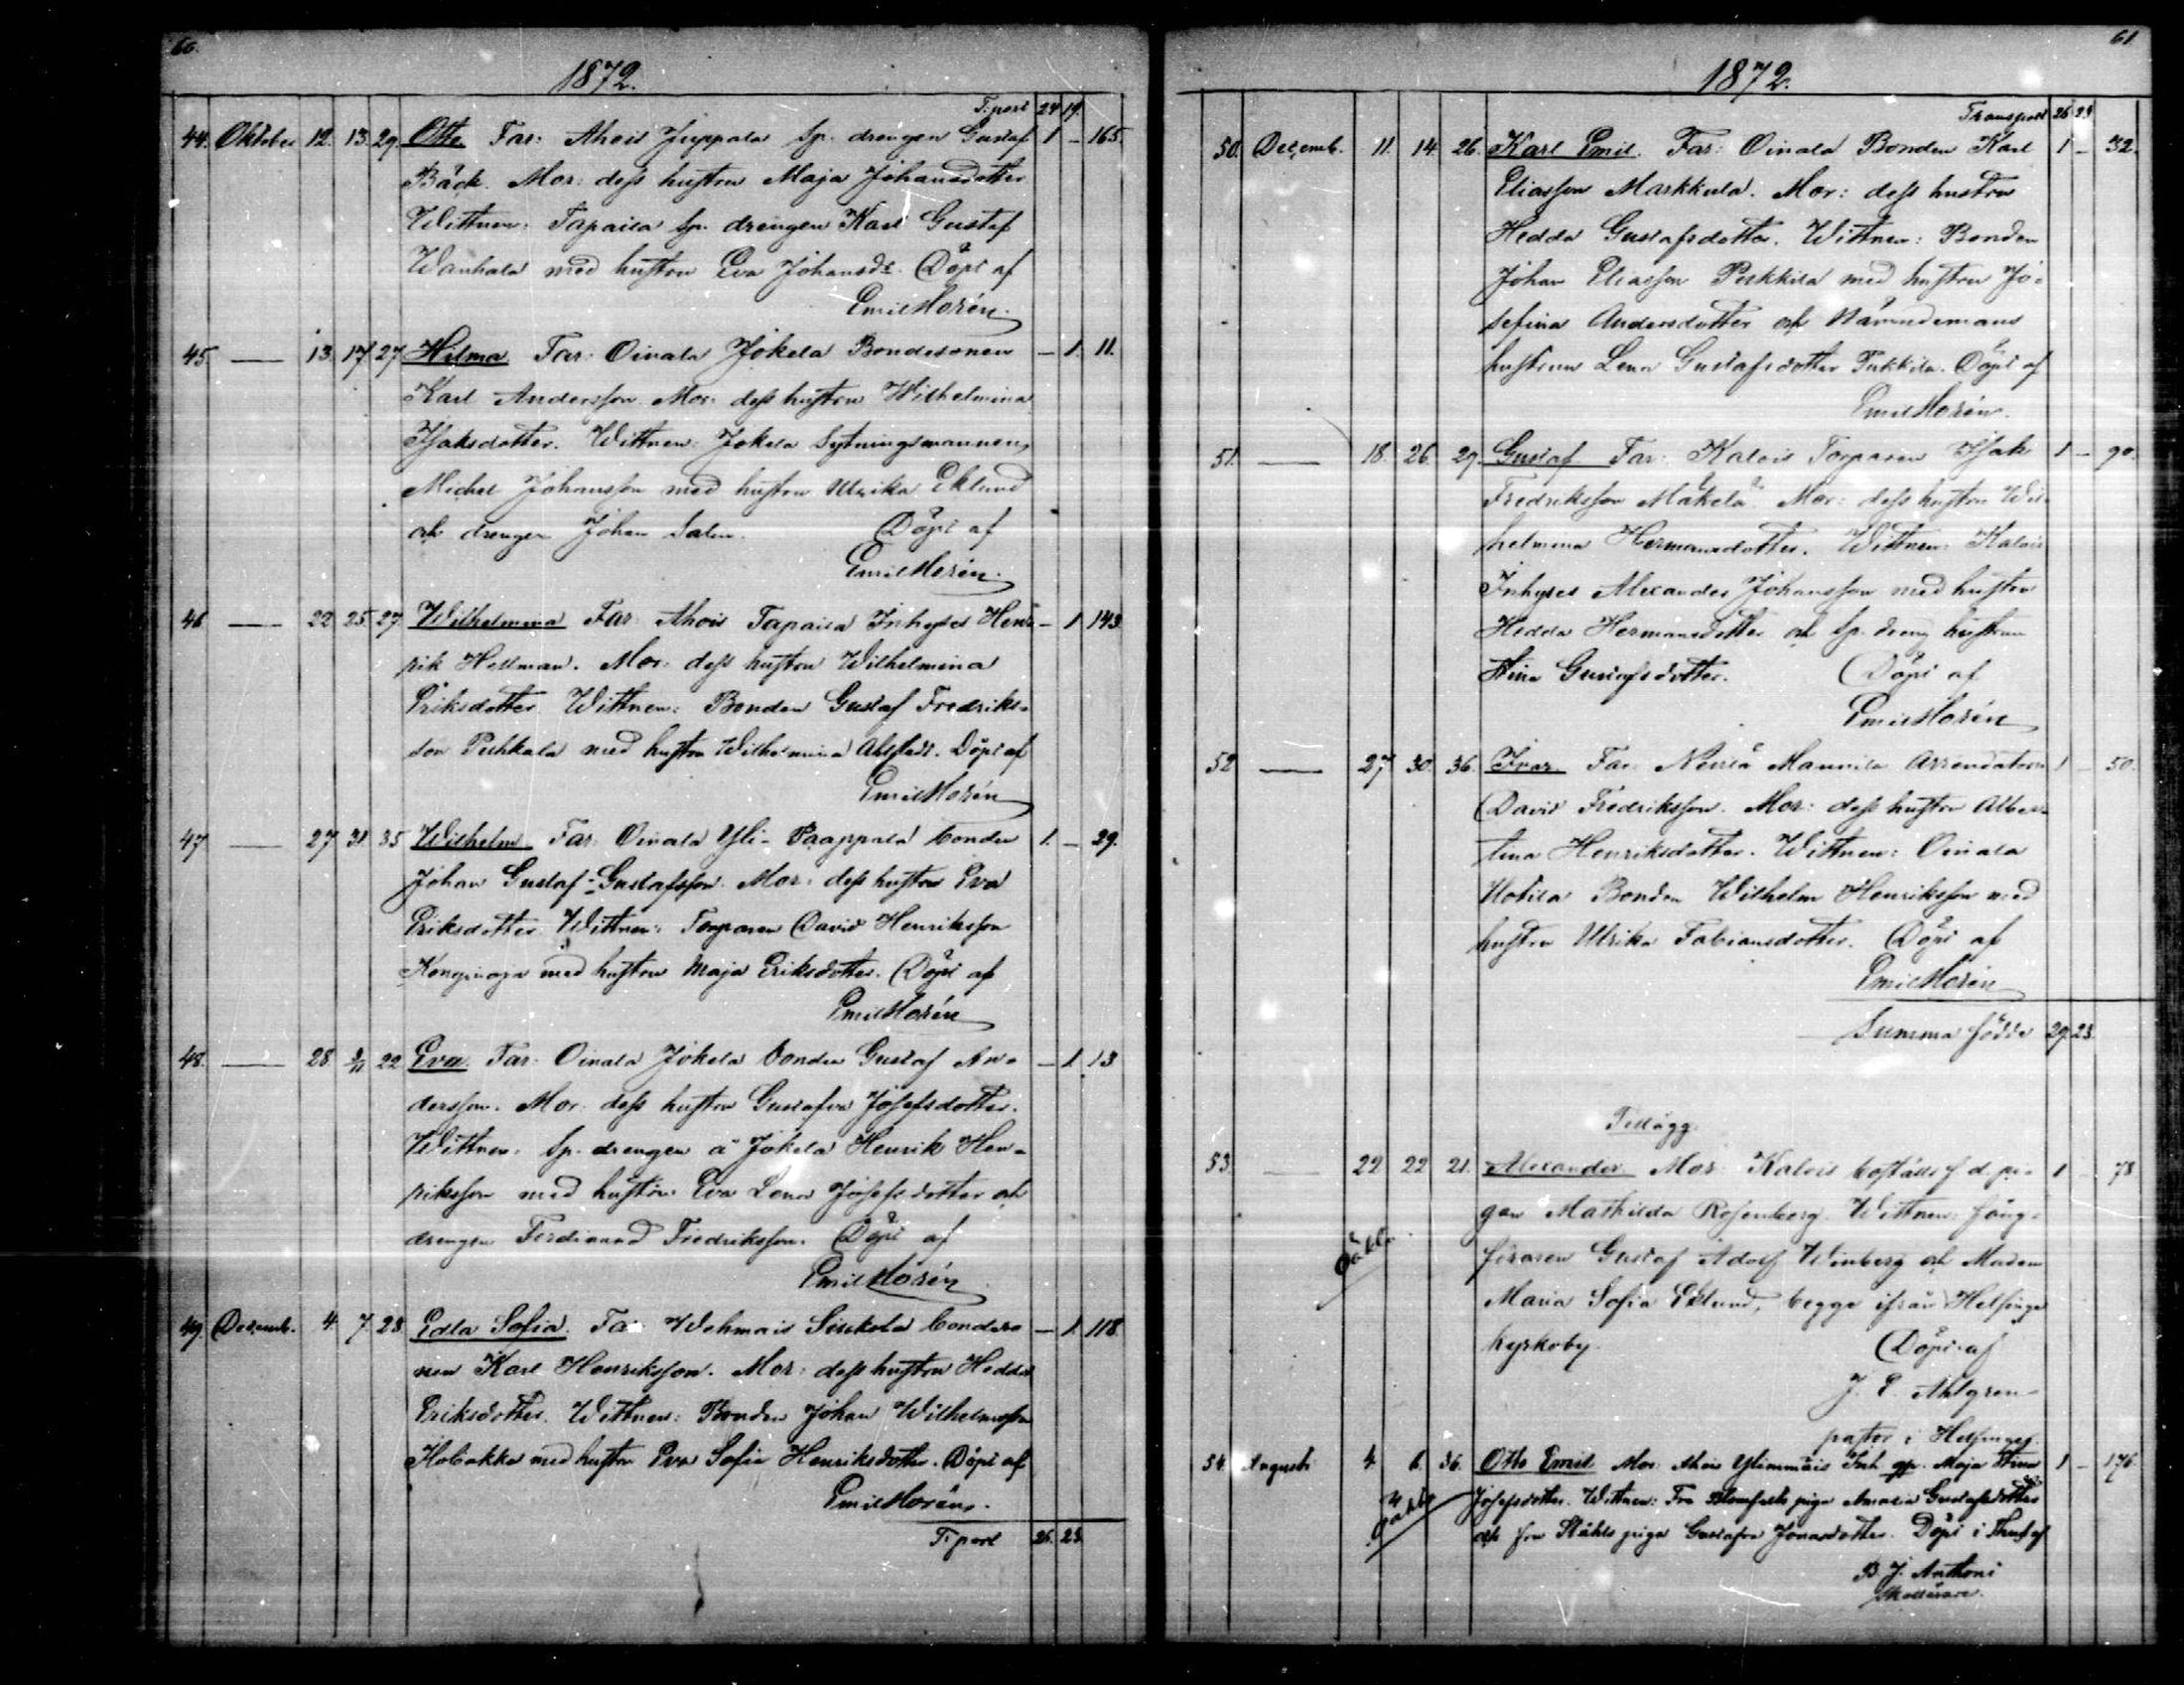 60.
1872.
T. port 24 19.
44. Oktober 12. 13. 29. Otto Far: Ahois Juppala Sp. drengen Gustaf 1 – 165.
Bäck. Mor: dess hustru Maja Johansdotter
Wittnen: Tapaila Sp. drengen Karl Gustaf
Wanhala med hustru Eva Johansdr. Döpt af
Emil Morén.
45 — 13. 17 27 Hilma Far: Oinala Jokela Bondesonen – 1. 11.
Karl Andersson. Mor: dess hustru Wilhelmina
Isaksdotter. Wittnen: Jokela Sytningsmannen,
Michel Johansson med hustru Ulrika Eklund
och drengen Johan Salen. Döpt af
Emil Morén.
46 — 22 25 27 Wilhelmina Far: Ahois Tapaila Inhyses Hen- – 1 143
rik Hellman. Mor: dess hustru Wilhelmina
Eriksdotter. Wittnen: Bonden Gustaf Fredriks-
son Puhkala med hustru Wilhelmina Ahlstedt. Döpt af
Emil Morén
47 — 27 31. 35 Wilhelm Far: Oinala Yli-Paappala bonden 1. – 29.
Johan Gustaf Gustafsson. Mor: dess hustru Eva
Eriksdotter. Wittnen: Torparen David Henriksson
med hustru Maja Eriksdotter. Döpt af
Emil Morén
48. — 28 3/11 22 Eva. Far: Oinala Jokela bonden Gustaf An- – 1. 13
dersson. Mor: dess hustru Gustafva Josefsdotter.
Wittnen: Sp. drengen å Jokela Henrik Hen-
riksson med hustru Eva Lena Josefsdotter och
drengen Ferdinand Fredriksson. Döpt af
Emil Morén
49 Decemb. 4. 7. 28 Edla Sofia. Far: Wehmais Sirkola bondeso- – 1. 118.
nen Karl Henriksson. Mor: dess hustru Hedda
Eriksdotter. Wittnen: Bonden Johan Wilhelmsson
Hobakka med hustru Eva Sofia Henriksdotter. Döpt af
Emil Morén.
T. port 26. 23.
61
1872.
Transport 26 23
50. Decemb. 11. 14. 26. Karl Emil. Far: Oinala Bonden Karl 1 – 32.
Eliasson Markkula. Mor: dess hustru
Hedda Gustafsdotter. Wittnen: Bonden
Johan Eliasson Perkkila med hustru Jo-
sefina Andersdotter och Nämndemans
hustrun Lena Gustafsdotter Pukkila. Döpt af
Emil Morén.
51. — 18. 26. 29. Gustaf Far: Kalois Torparen Isak 1 – 90.
Fredriksson Mäkelä. Mor: dess hustru Wil-
helmina Hermansdotter. Wittnen: Kalois
Inhyses Alexander Johansson med hustru
Hedda Hermansdotter och Sp. dreng hustrun
Stina Gustafsdotter. Döpt af
Emil Morén
52 — 27 30. 36. Ivar. Far: Neirlä Mannila Arrendatorn 1 – 50.
David Fredriksson. Mor: dess hustru Alber-
tina Henriksdotter. Wittnen: Oinala
Uotila Bonden Wilhelm Henriksson med
hustru Ulrika Fabiansdotter. Döpt af
Emil Morén
Summa födde 29. 23.
Tillägg.
53. — 22 22 21. Alexander. Mor: Kalois boställe f. d. pi- 1 – 78
gan Mathilda Rosenberg. Wittnen: fång-
föraren Gustaf Adolf Winberg och Madam
Maria Sofia Eklund, begge ifrån Helsinge
kyrkoby. Döpt af
J. E. Ahlgren
oäkta
pastor i Helsinge.
54. Augusti 4. 6. 36. Otto Emil Mor: Ahois Ylimmäis Inh. Maja Stina 1 – 176.
Josefsdotter. Wittnen: Fru piga Amalia Gustafsdotter
och fru Ståhls piga Gustafva Jonasdotter. Döpt i af
oäkta
B. J. Anthoni
Skollärare.